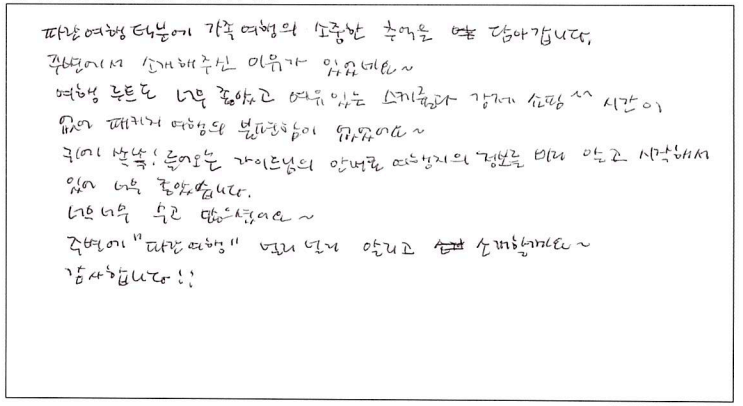 파란여행 덕분에 가족여행의 소중한 추억을 담아갑니다.
주변에서 소개해주신 이유가 있었네요~
여행 루트도 너무 좋았고 여유있는 스케줄과 강제 쇼핑^^ 시간이
없어 패키지 여행의 불편함이 없었어요~
귀에 쏙쏙! 들어오는 가이드님의 안내로 여행지의 정보를 미리 알고 시작해서
있어 너무 좋았습니다.
너무너무 수고 많으셨어요~
주변에 "파란여행" 널리널리 알리고 소개할게요~
감사합니다!!